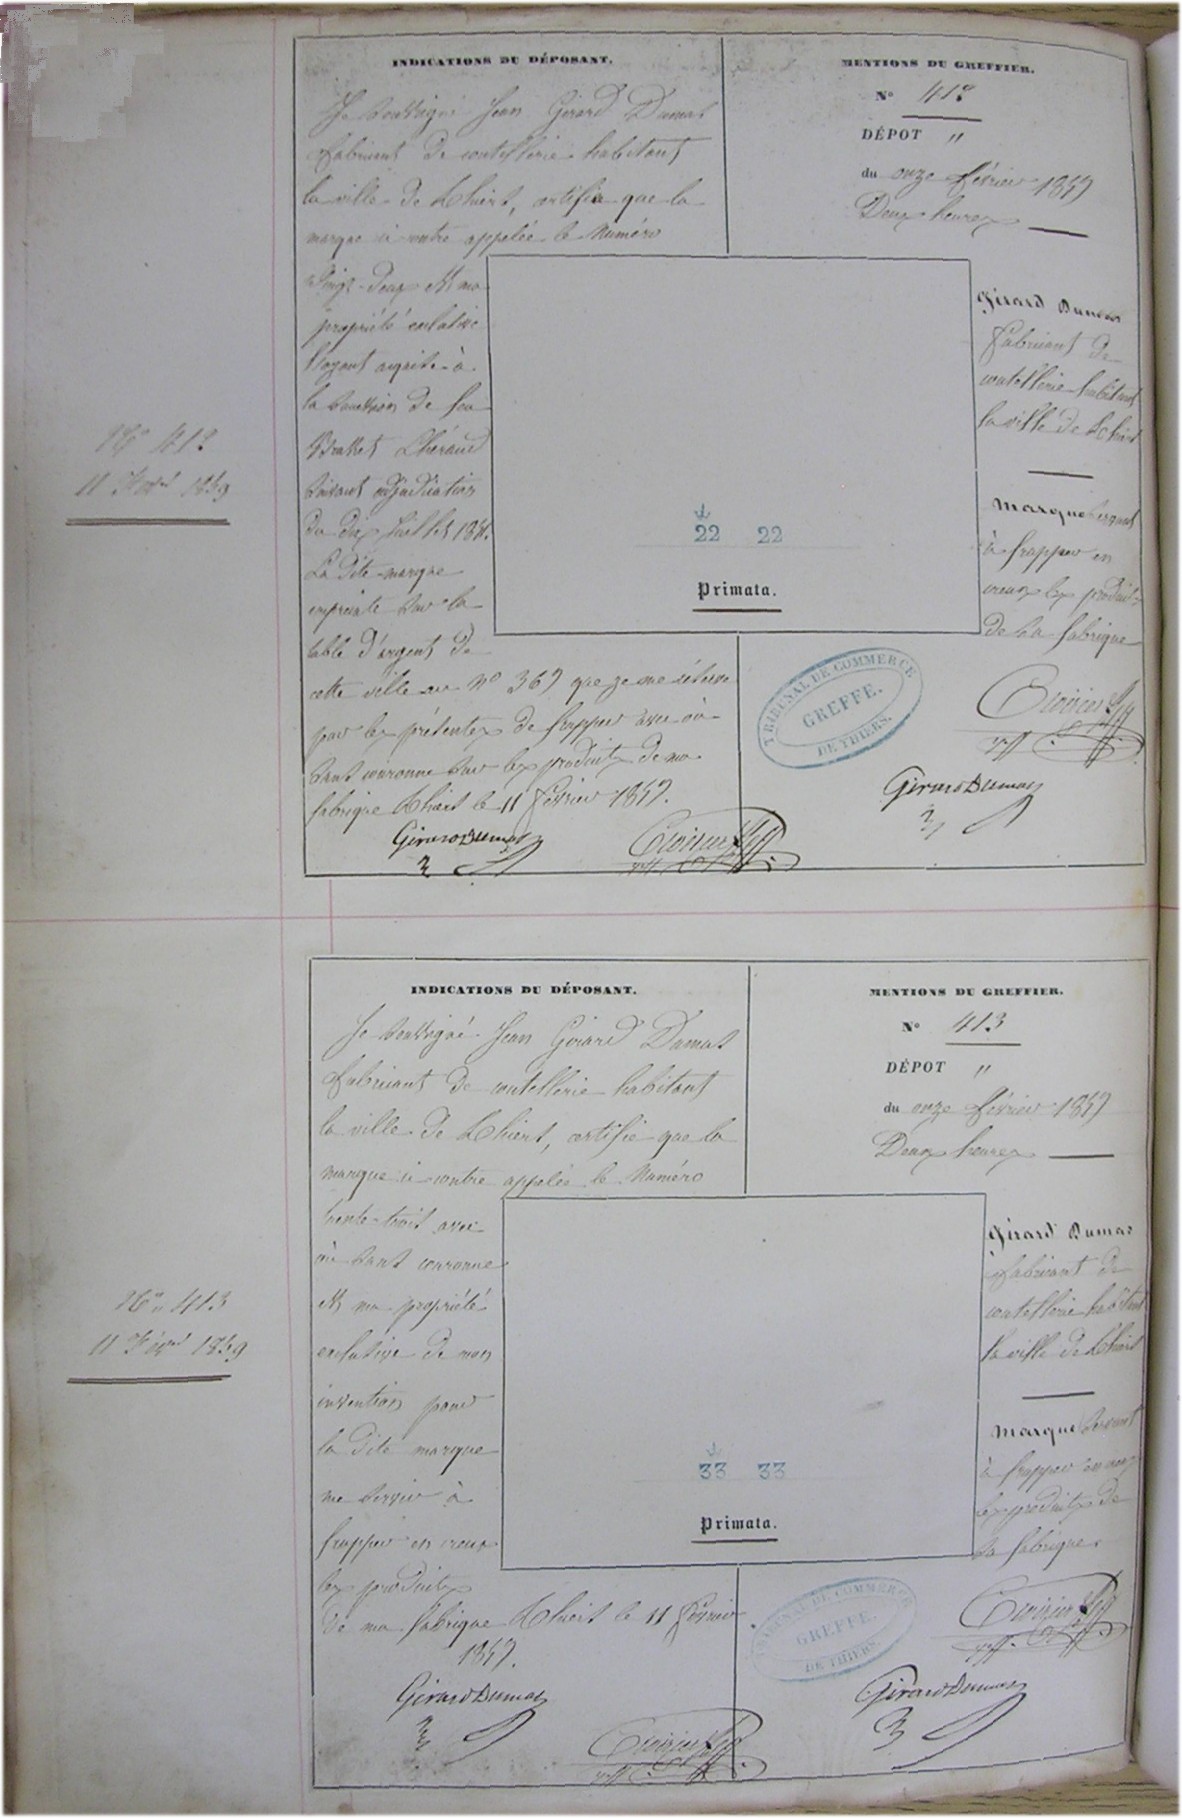 INDICATIONS DU DÉPOSANT.
Je soussigné Jean Girard Dumas
fabricant de coutellerie habitant
la ville de Thiers, certifie que la
marque ci contre appelée le Numéro
Vingt-deux est ma
propriété exclusive
l'ayant acquise à
la succession de feu
suivant adjudication
du dix Juillet
La dite marque
empreinte sur la
table d'argent de
cette ville au N° 367 que je me réserve
par les présentes de frapper avec ou
sans couronne sur les produits de ma
fabrique Thiers le 11 février 1859.
Girard Dumas
MENTIONS DU GREFFIER.
N° 412
DÉPOT "
du onze février 1859
Deux heures
22 22
Primata.
Girard Dumas
fabricant de
coutellerie habitant
la ville de Thiers
Marque servant
à frapper en
creux les produits
de sa fabrique
TRIBUNAL DE COMMERCE
GREFFE.
DE THIERS.
Girard Dumas
N° 412
11 Févri 1859
INDICATIONS DU DÉPOSANT.
Je soussigné Jean Girard Dumas
fabricant de coutellerie habitant
la ville de Thiers, certifie que la
marque ci-contre appelée le Numéro
trente-trois avec
ou sans couronne
est ma propriété
exclusive de mon
invention pour
la dite marque
me servir à
frapper en creux
les produits
de ma fabrique Thiers le 11 février
1859.
Girard Dumas
MENTIONS DU GREFFIER.
N° 413
DÉPOT "
du onze février 1859
Deux heures
33 33
Primata.
Girard Dumas
fabricant de
coutellerie habitant
la ville de Thiers
Marque servant
à frapper en creux
les produits de
sa fabrique.
TRIBUNAL DE COMMERCE
GREFFE.
DE THIERS.
Girard Dumas
N° 413
11 Févri 1859